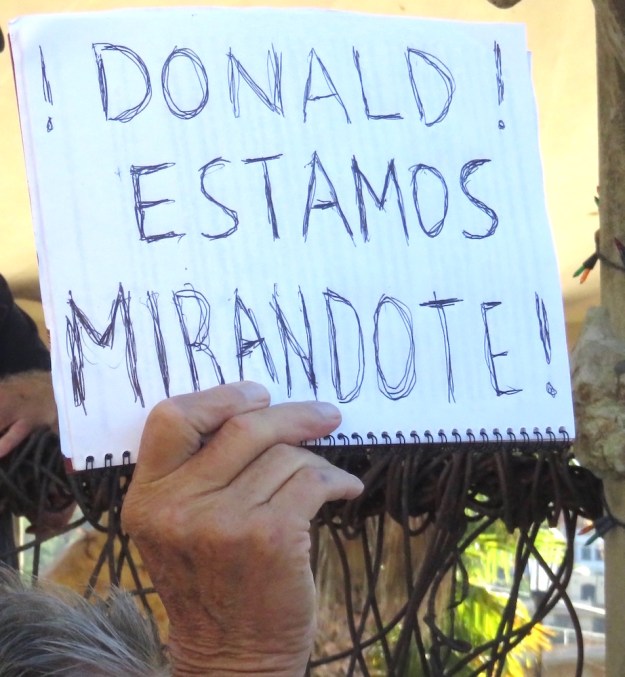 ! DONALD !
ESTAMOS
MIRANDOTE!